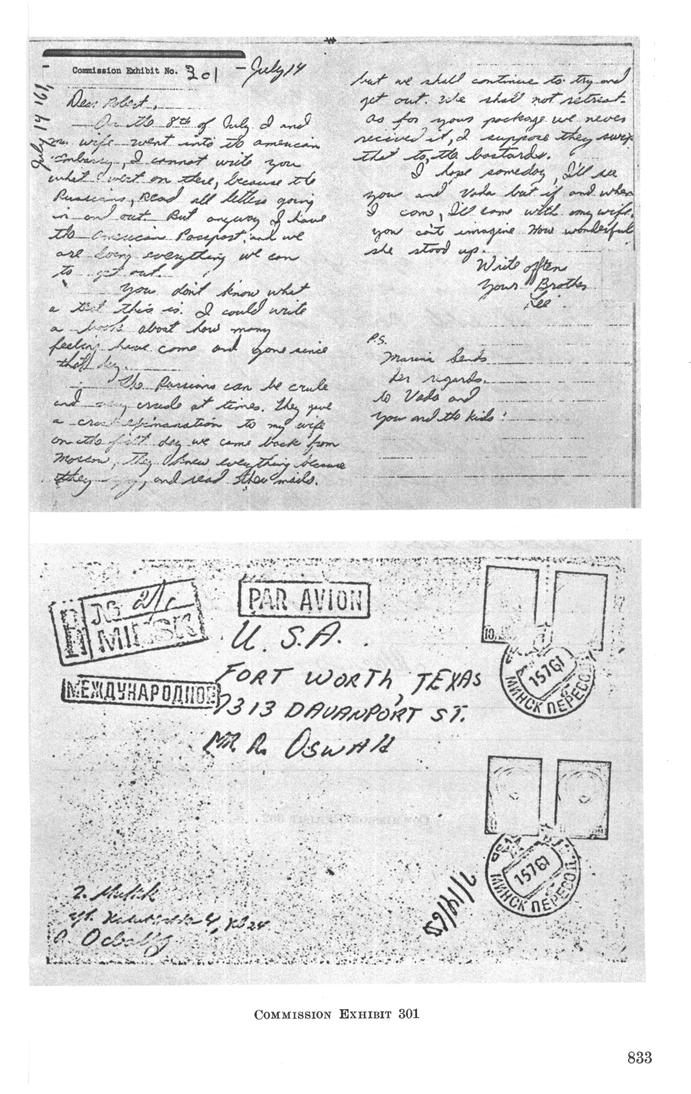 Commission Exhibit No. 301 - July 14
July 14 '61,
Dear Robert,
On the 8th of July I and
my wife went into the american
Embassy, I cannot write you
what went on there, because the
Russians, Read all letters going
in and out. But anyway I have
the American Passport, and we
are doing everything we can
to get out.
You don't know what
a test this is. I could write
a book about how many
feeling have come and gone since
that day.
The Russians can be crule
and very crude at times. They gave
a cross to my wife
on the first day we came back from
Moscow, they knew everything because
they and read the mails.
but we shall continue to try and
get out. We shall not retreat.
As for your package we never
received it, I suppose they swip
that to, the bastards.
I hope someday, I'll see
you and Vada but if and when
I come, I'll come with my wife.
you can't imagine how wonderful
she stood up.
Write often
Your Brother
Lee
P.S.
Marina sends
her regards
to Vada and
you and the kids!
R № MINSK
PAR AVION
МЕЖДУНАРОДНОЕ
U.S.A.
FORT WORTH, TEXAS
7313 DAVANPORT ST.
MR R. OSWALd
15761
МИНСК ПЕРЕСЫЛ
15761
МИНСК ПЕРЕСЫЛ
г. Минск
ул.
COMMISSION EXHIBIT 301
833